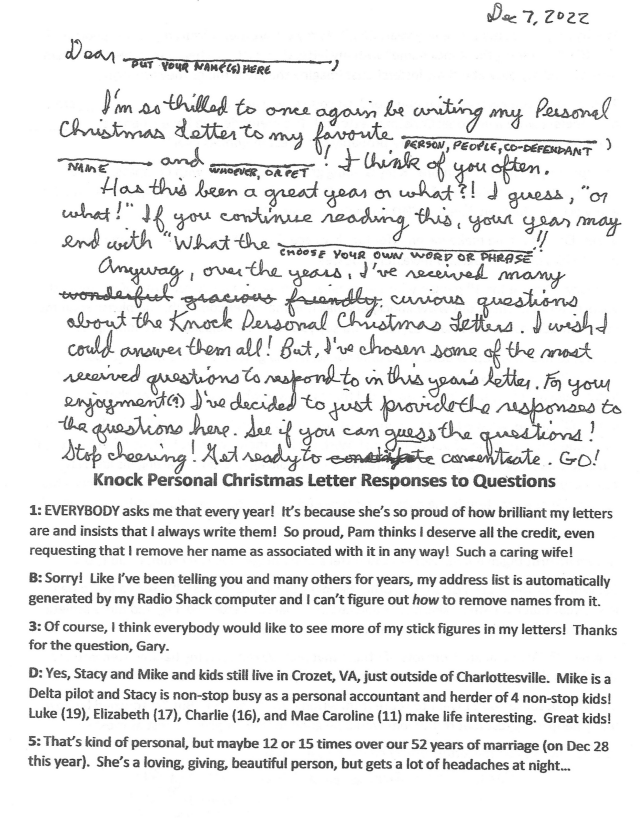 Dec 7, 2022
Dear ____________,
PUT YOUR NAME(S) HERE
I'm so thrilled to once again be writing my Personal
Christmas Letter to my favorite ____________,
PERSON, PEOPLE, CO-DEFENDANT
____________ and ____________! I think of you often.
NAME WHOEVER, OR PET
Has this been a great year or what?! I guess, "or
what!" If you continue reading this, your year may
end with "What the ____________"!!
CHOOSE YOUR OWN WORD OR PHRASE
Anyway, over the years, I've received many
wonderful gracious friendly curious questions
about the Knock Personal Christmas Letters. I wish I
could answer them all! But, I've chosen some of the most
received questions to respond to in this year's letter. For your
enjoyment(?) I've decided to just provide the responses to
the questions here. See if you can guess the questions!
Stop cheering! Get ready to constipate concentrate. GO!
Knock Personal Christmas Letter Responses to Questions
1: EVERYBODY asks me that every year! It's because she's so proud of how brilliant my letters
are and insists that I always write them! So proud, Pam thinks I deserve all the credit, even
requesting that I remove her name as associated with it in any way! Such a caring wife!
B: Sorry! Like I've been telling you and many others for years, my address list is automatically
generated by my Radio Shack computer and I can't figure out how to remove names from it.
3: Of course, I think everybody would like to see more of my stick figures in my letters! Thanks
for the question, Gary.
D: Yes, Stacy and Mike and kids still live in Crozet, VA, just outside of Charlottesville. Mike is a
Delta pilot and Stacy is non-stop busy as a personal accountant and herder of 4 non-stop kids!
Luke (19), Elizabeth (17), Charlie (16), and Mae Caroline (11) make life interesting. Great kids!
5: That's kind of personal, but maybe 12 or 15 times over our 52 years of marriage (on Dec 28
this year). She's a loving, giving, beautiful person, but gets a lot of headaches at night...